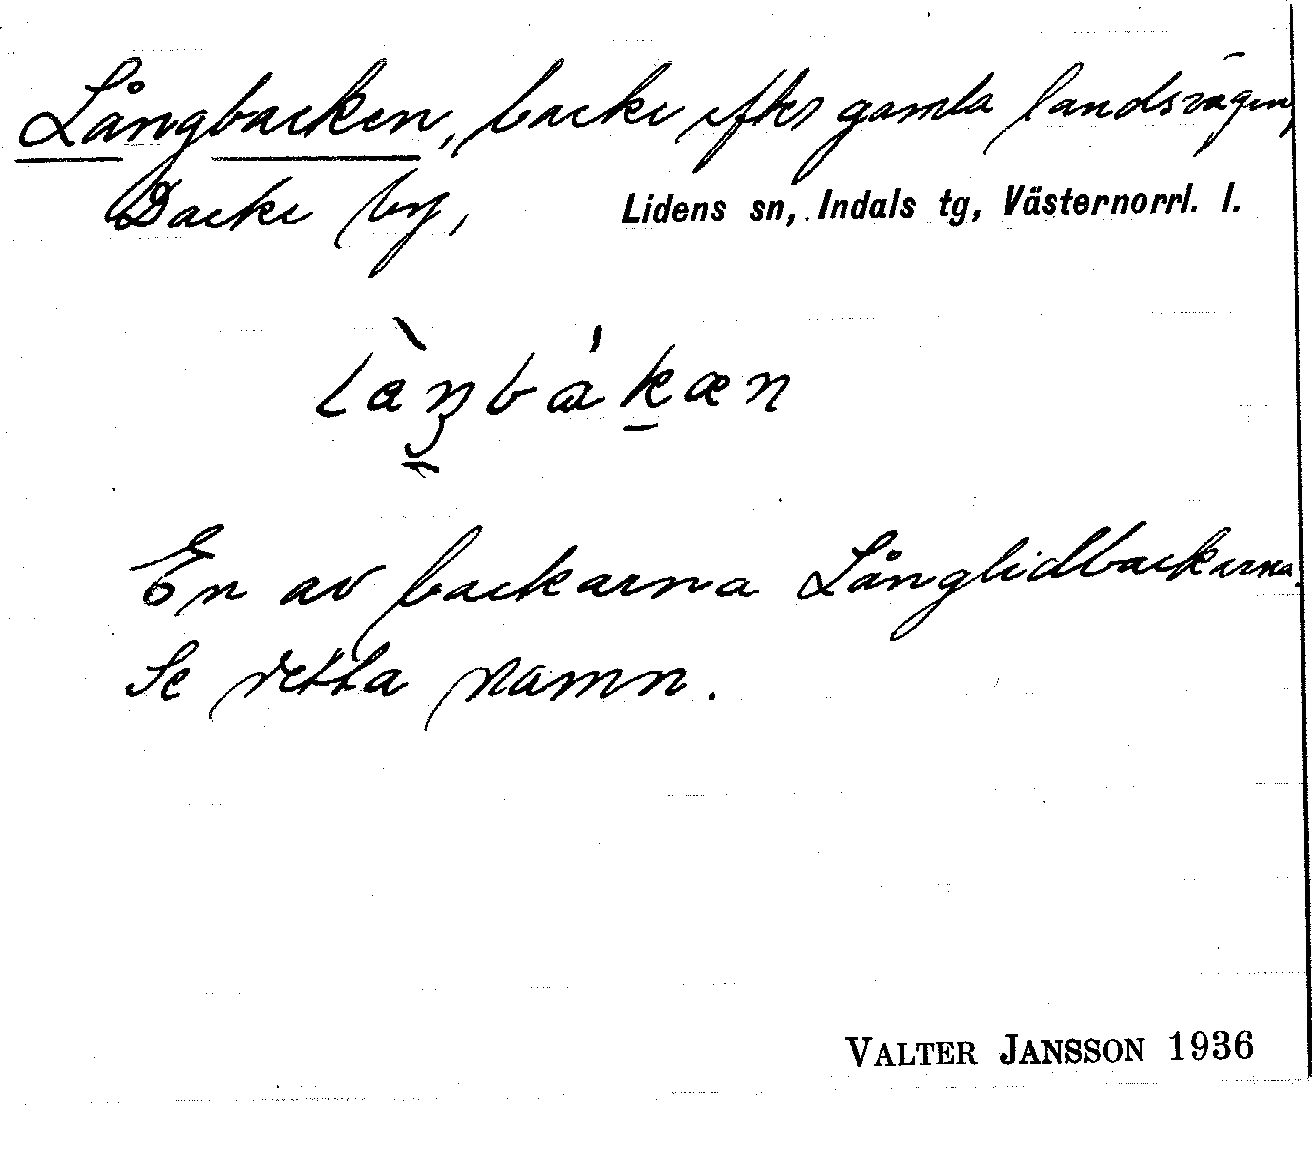 Långbacken, backe efter gamla landsvägen,
Backe by, Lidens sn, Indals tg, Västernorrl. l.
En av backarna Långlidbackarna.
Se detta namn.
VALTER JANSSON 1936